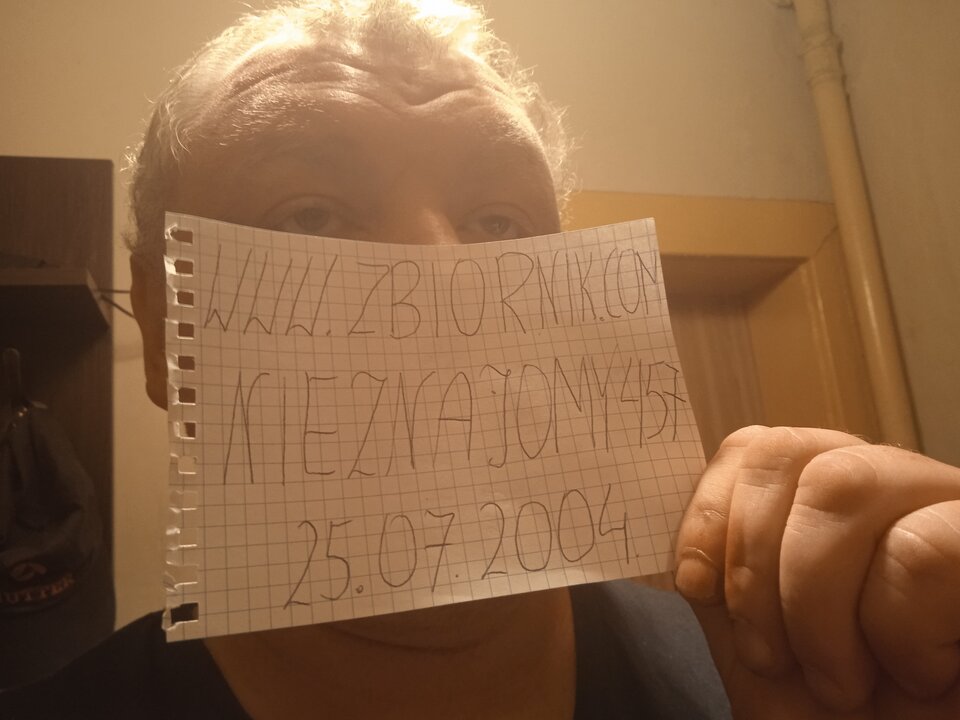 WWW.ZBIORNIK.COM
NIEZNAJOMY457
25.07.2004.